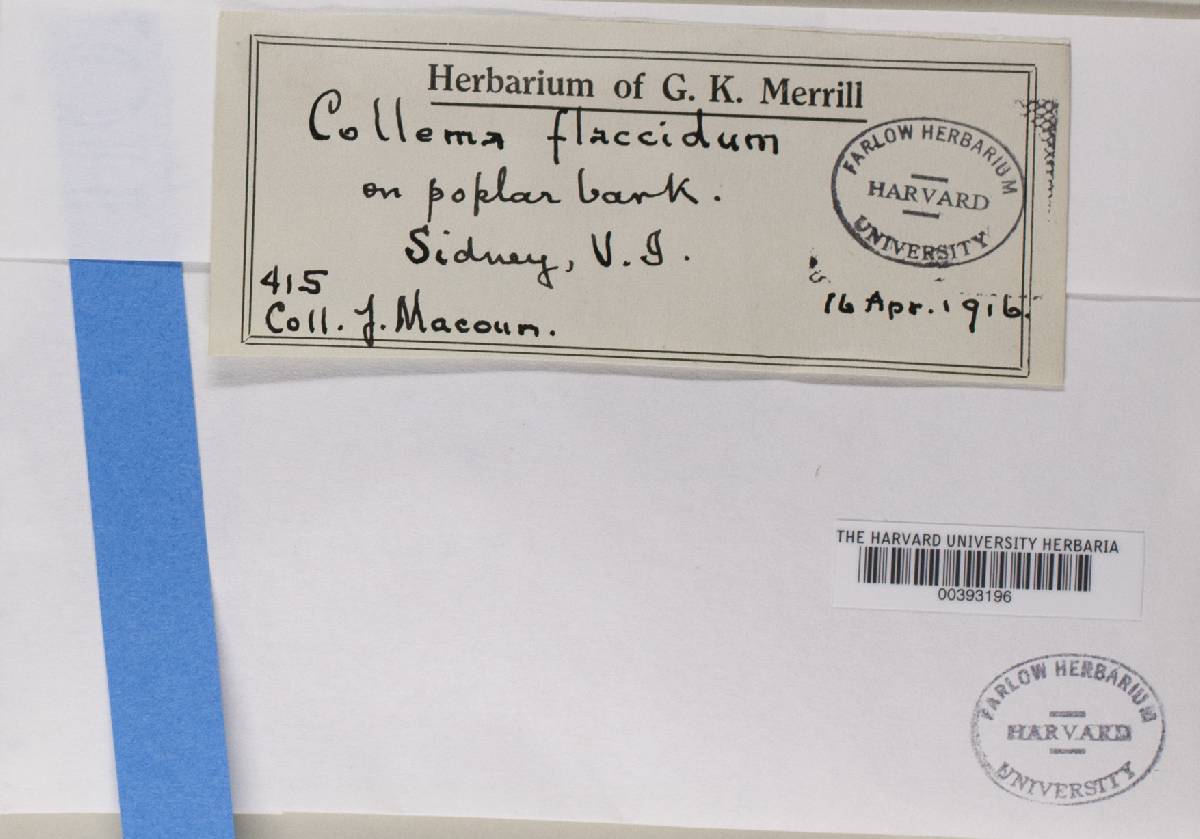 Herbarium of G. K. Merrill
Collema flaccidum
on poplar bark.
Sidney, V. I.
415
Coll. J. Macoun.
16 Apr. 1916.
FARLOW HERBARIUM
HARVARD
UNIVERSITY
THE HARVARD UNIVERSITY HERBARIA
00393196
FARLOW HERBARIUM
HARVARD
UNIVERSITY